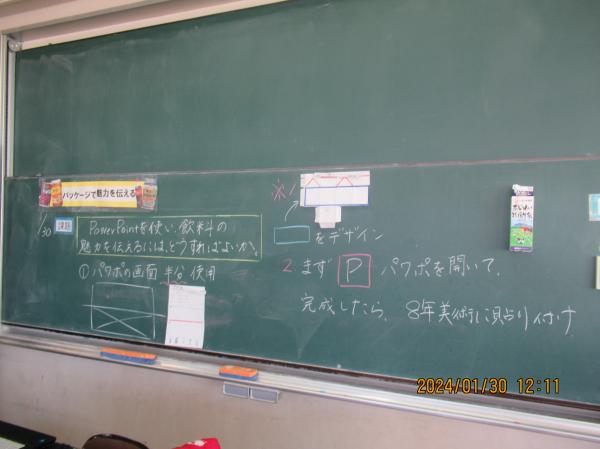 パッケージで魅力を伝える
1/30 課題 PowerPointを使い、飲料の
魅力を伝えるには、どうすればよいか。
① パワポの画面 半分 使用
※1
をデザイン
2 まず P パワポを開いて、
完成したら、8年美術に貼り付け
2024/01/30 12:11